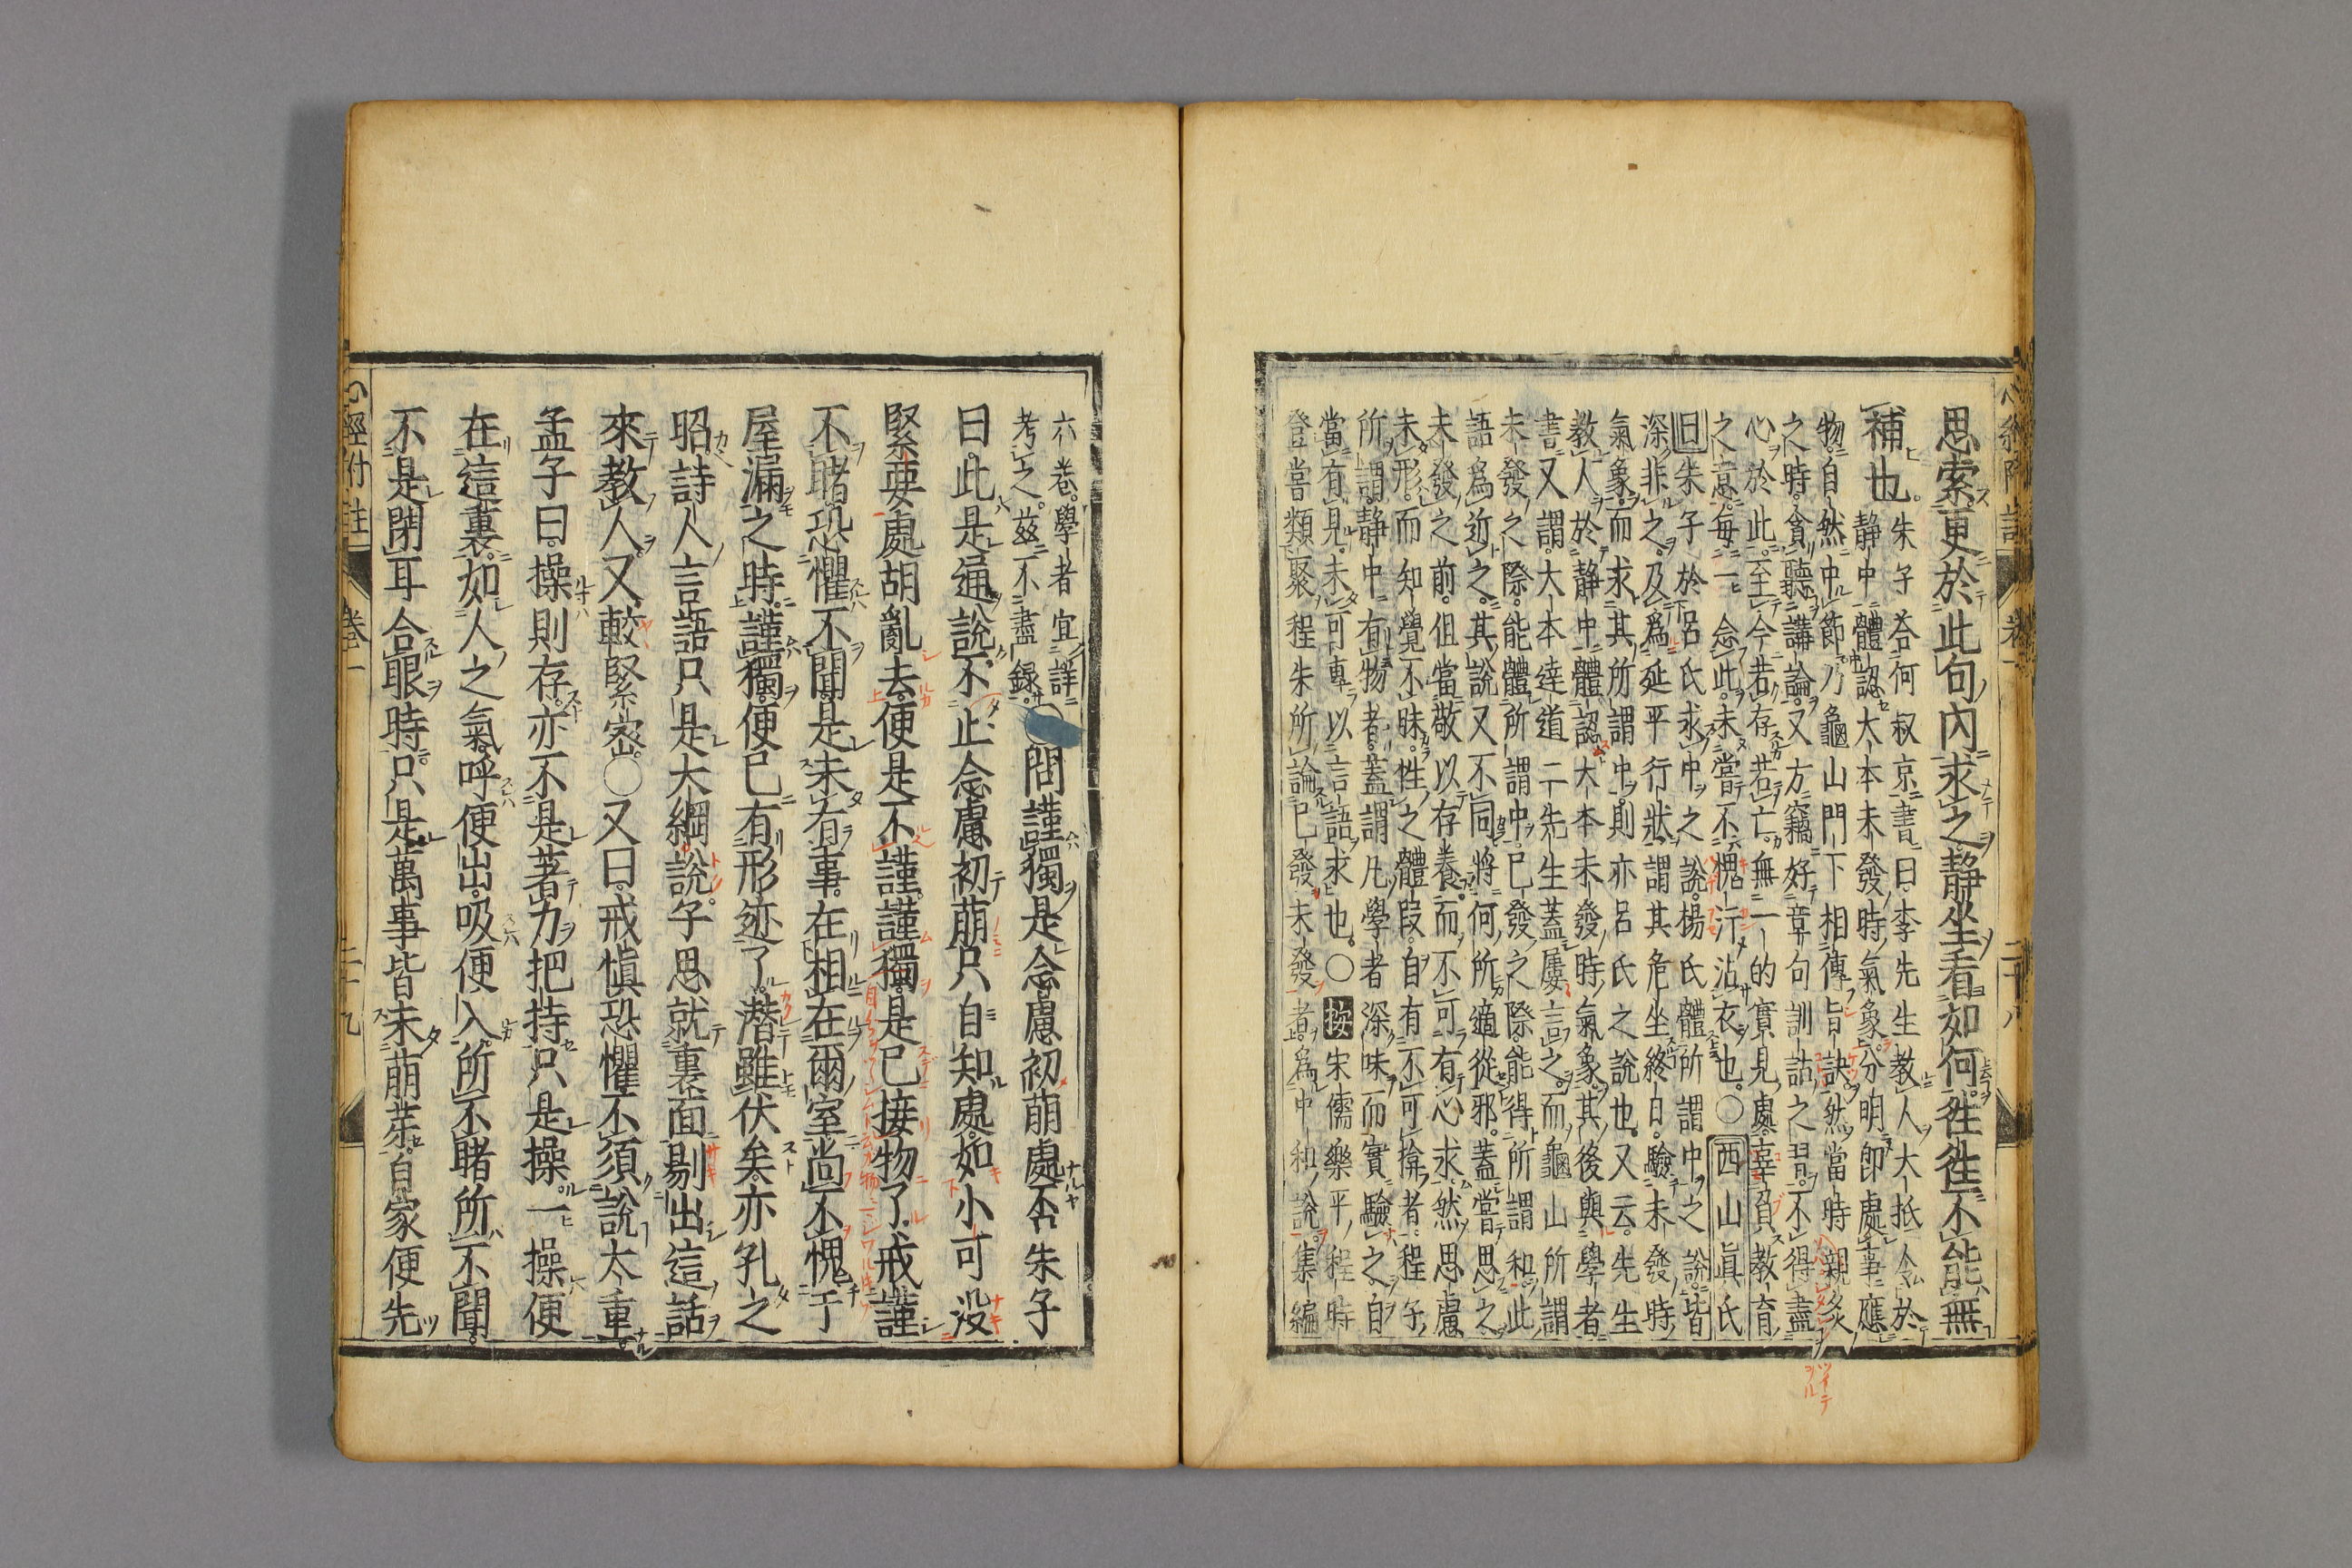 思索更於此句內求之靜坐看如何徃徃不能無
補也
朱子荅何叔京書曰李先生教人大抵令於
靜中體認大本未發時氣象分明卽處事應
物自然中節乃龜山門下相傳旨訣然當時親炙
之時貪聽講論又方竊好章句訓詁之習不得盡
心於此至今若存若亡無一的實見處辜負教育
之意每一念此未嘗不愧汗沾衣也○西山眞氏
曰朱子於呂氏求中之說楊氏體所謂中之說皆
深非之及爲延平行狀謂其危坐終日驗未發時
氣象而求其所謂中則亦呂氏之說也又云先生
教人於靜中體認大本未發時氣象其後與學者
書又謂大本達道二先生蓋屢言之而龜山所謂
未發之際能體所謂中已發之際能得所謂和此
語爲近之其說又不同將何所適從邪蓋嘗思之
未發之前但當敬以存養而不可有心求然思慮
未形而知覺不昧性之體段自有不可揜者程子
所謂靜中有物者蓋謂凡學者深味而實驗之自
當有見未可專以言語求也○按宋儒樂平程時
登嘗類聚程朱所論已發未發者爲中和說集編
六卷學者宜詳
考之茲不盡錄
○問謹獨是念慮初萌處否朱子
曰此是通說不止念慮初萌只自知處如小可沒
緊要處胡亂去便是不謹謹獨是已接物了戒謹
不睹恐懼不聞是未有事在相在爾室尚不愧于
屋漏之時謹獨便已有形迹了潛雖伏矣亦孔之
昭詩人言語只是大綱說子思就裏面剔出這話
來教人又較緊密○又曰戒愼恐懼不須說太重
孟子曰操則存亦不是著力把持只是操一操便
在這裏如人之氣呼便出吸便入所不睹所不聞
不是閉耳合眼時只是萬事皆未萌芽自家便先
心經附註 卷一